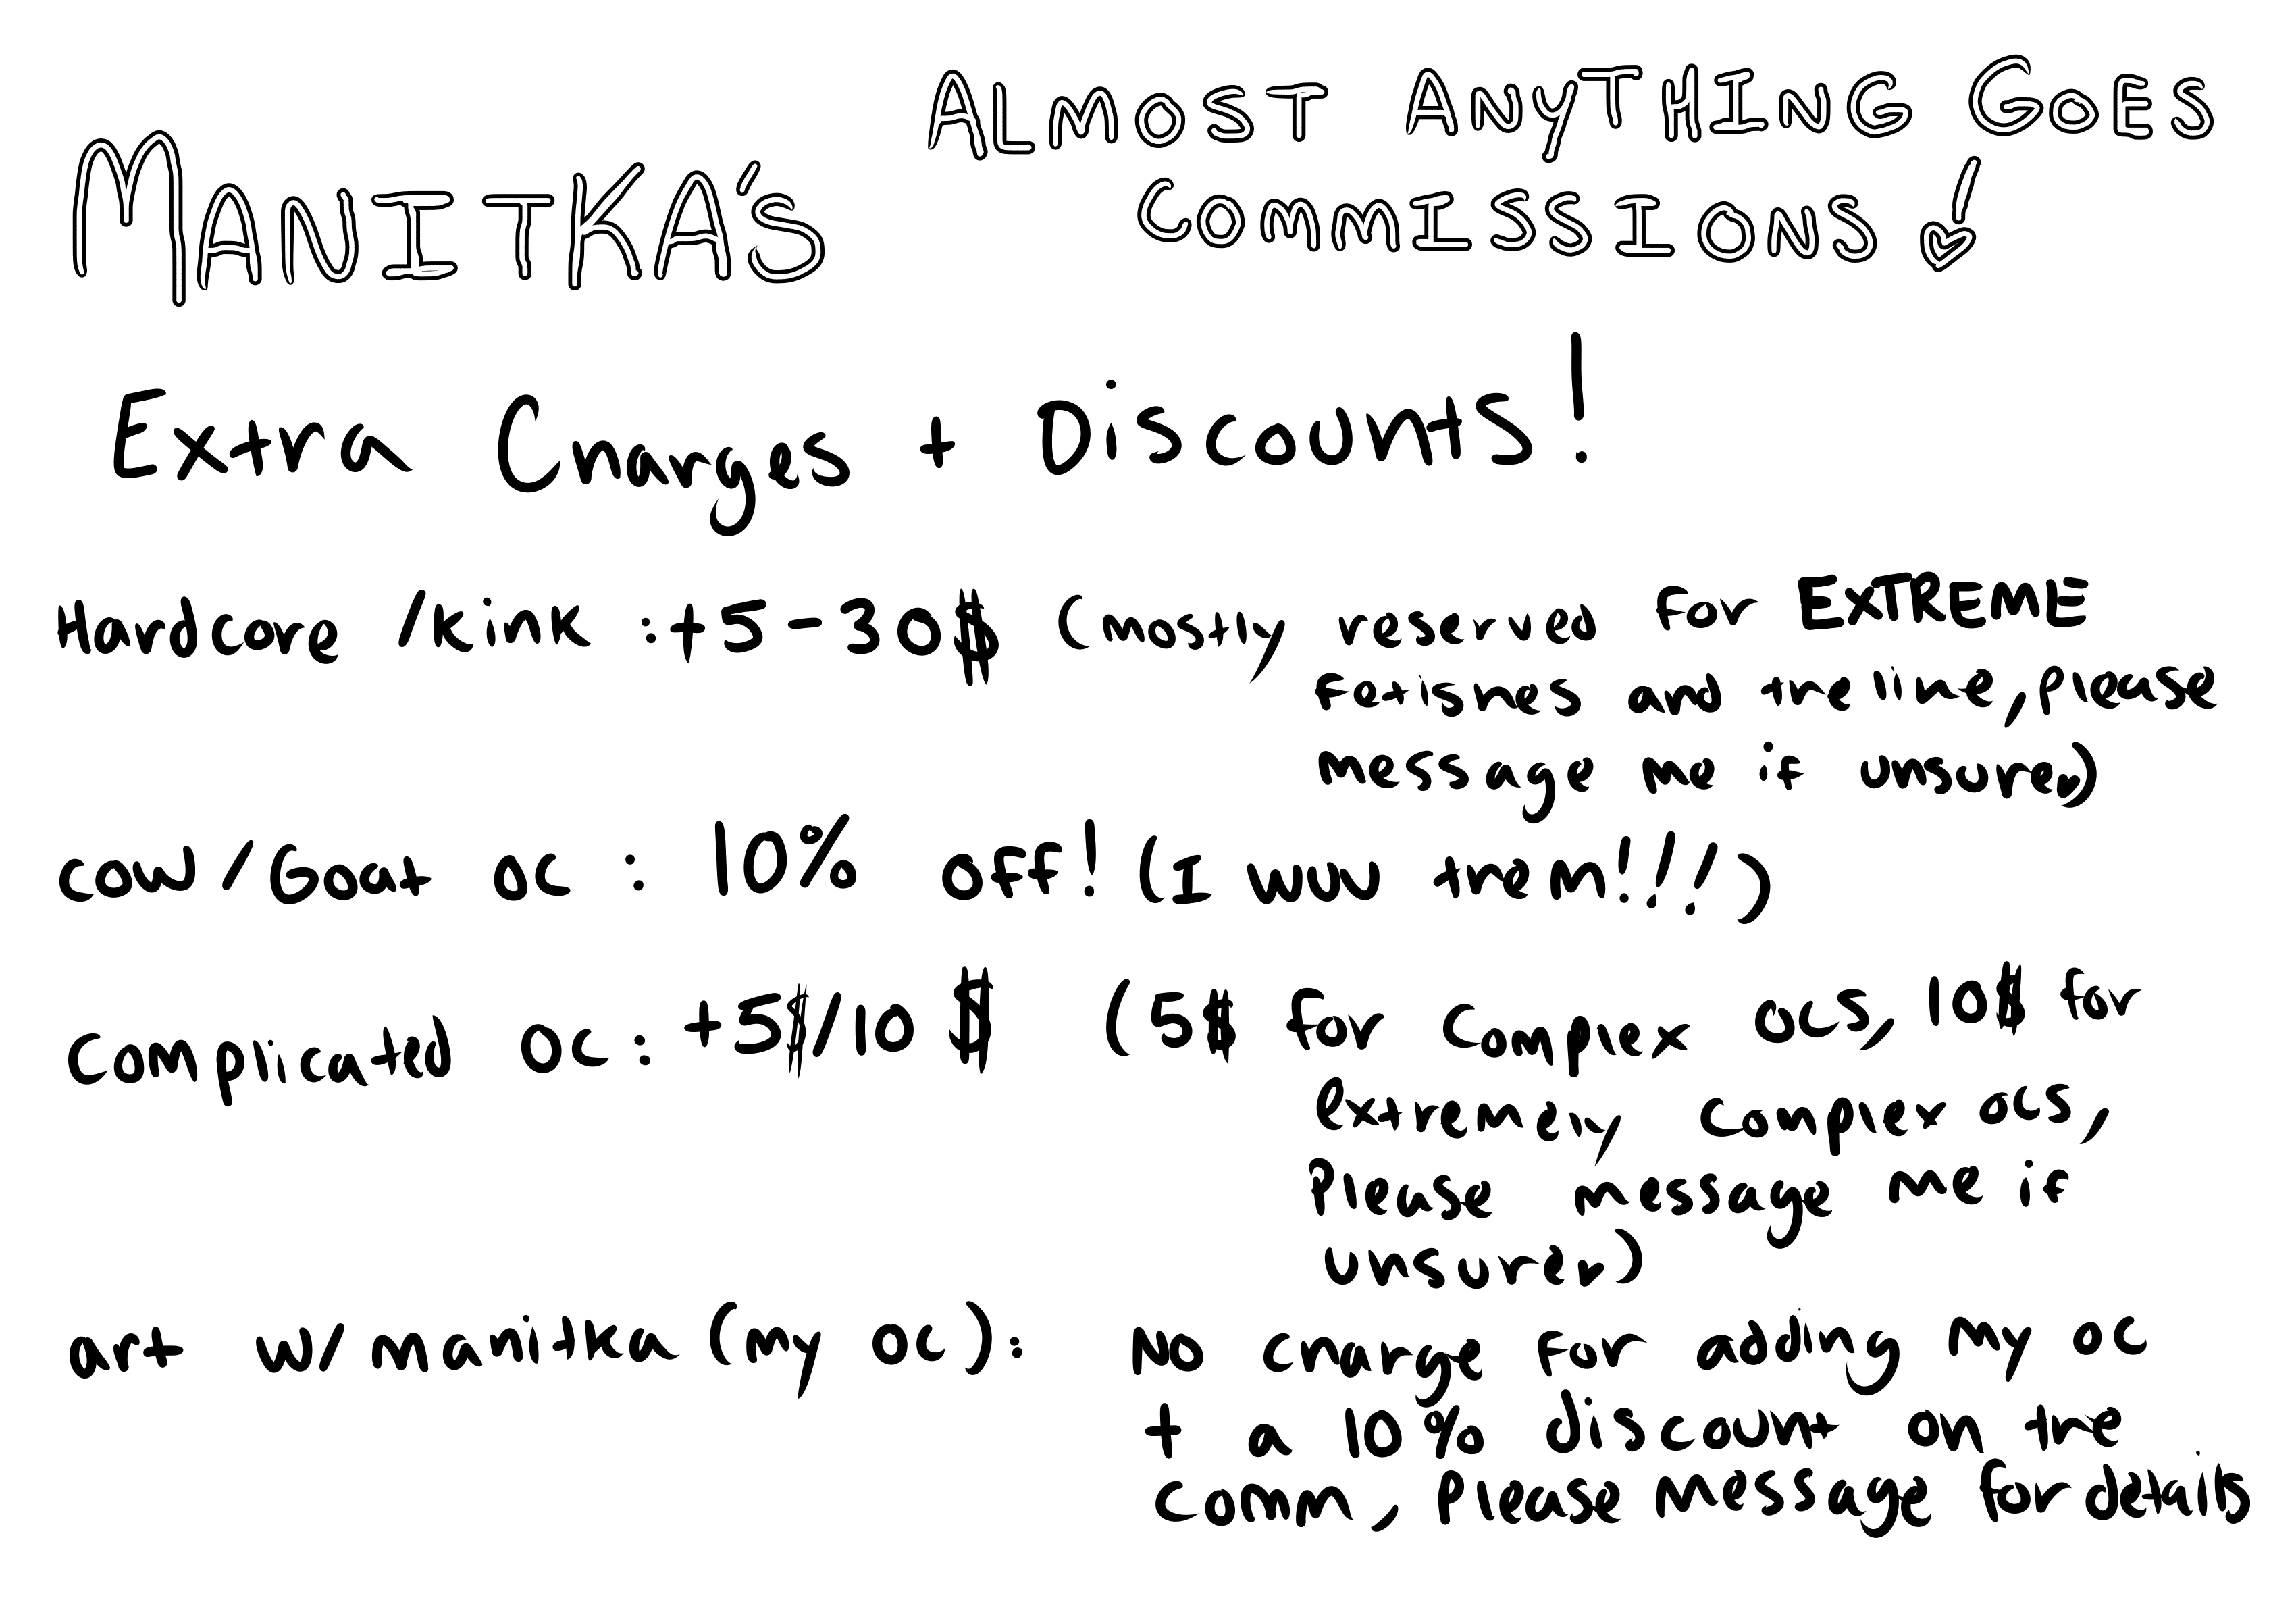 MANITKA'S
ALMOST ANYTHING GOES
COMMISSIONS!
Extra Charges + Discounts!
Hardcore /kink :+5-30$ (mostly reserved for EXTREME
fetishes and the like, please
message me if unsure)
cow/Goat oc : 10% off! (I wuv them!!!)
complicated oc: +5$/10$ (5$ for complex ocs, 10$ for
extremely complex ocs,
please message me if
unsure)
art w/ manitka (my oc): No charge for adding my oc
+ a 10% discount on the
comm, please message for details